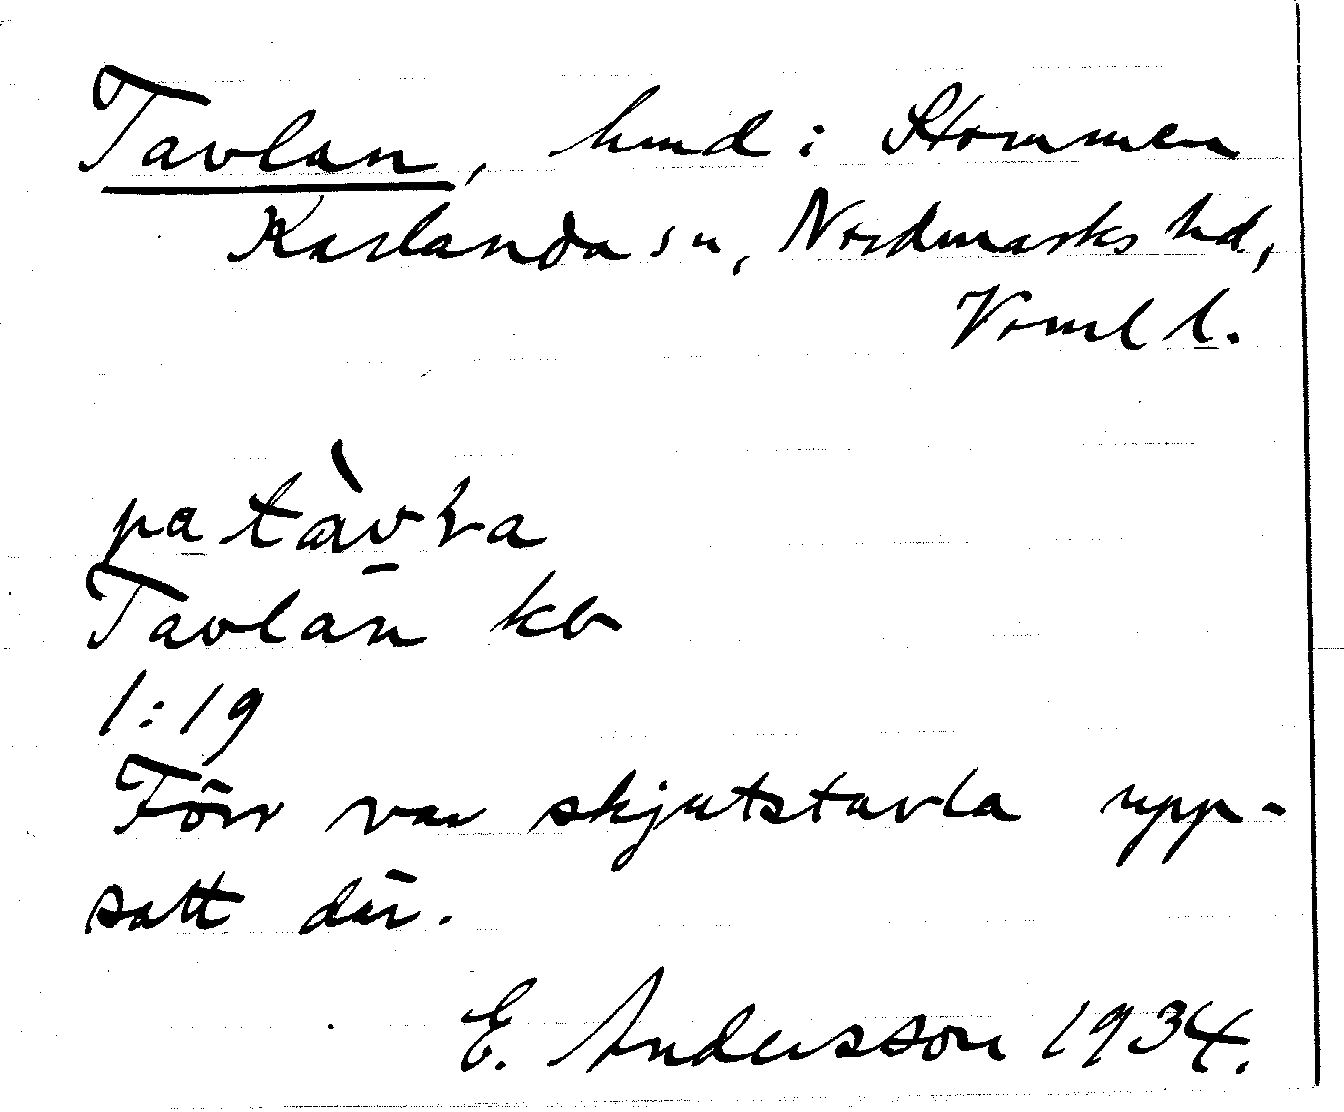 Tavlan, hmd i Stommen
Karlanda sn, Nordmarks hd,
Värml l.
pa tàvƚa
Tavlan kb
1:19
Förr var skjutstavla upp-
satt där.
E. Andersson 1934.